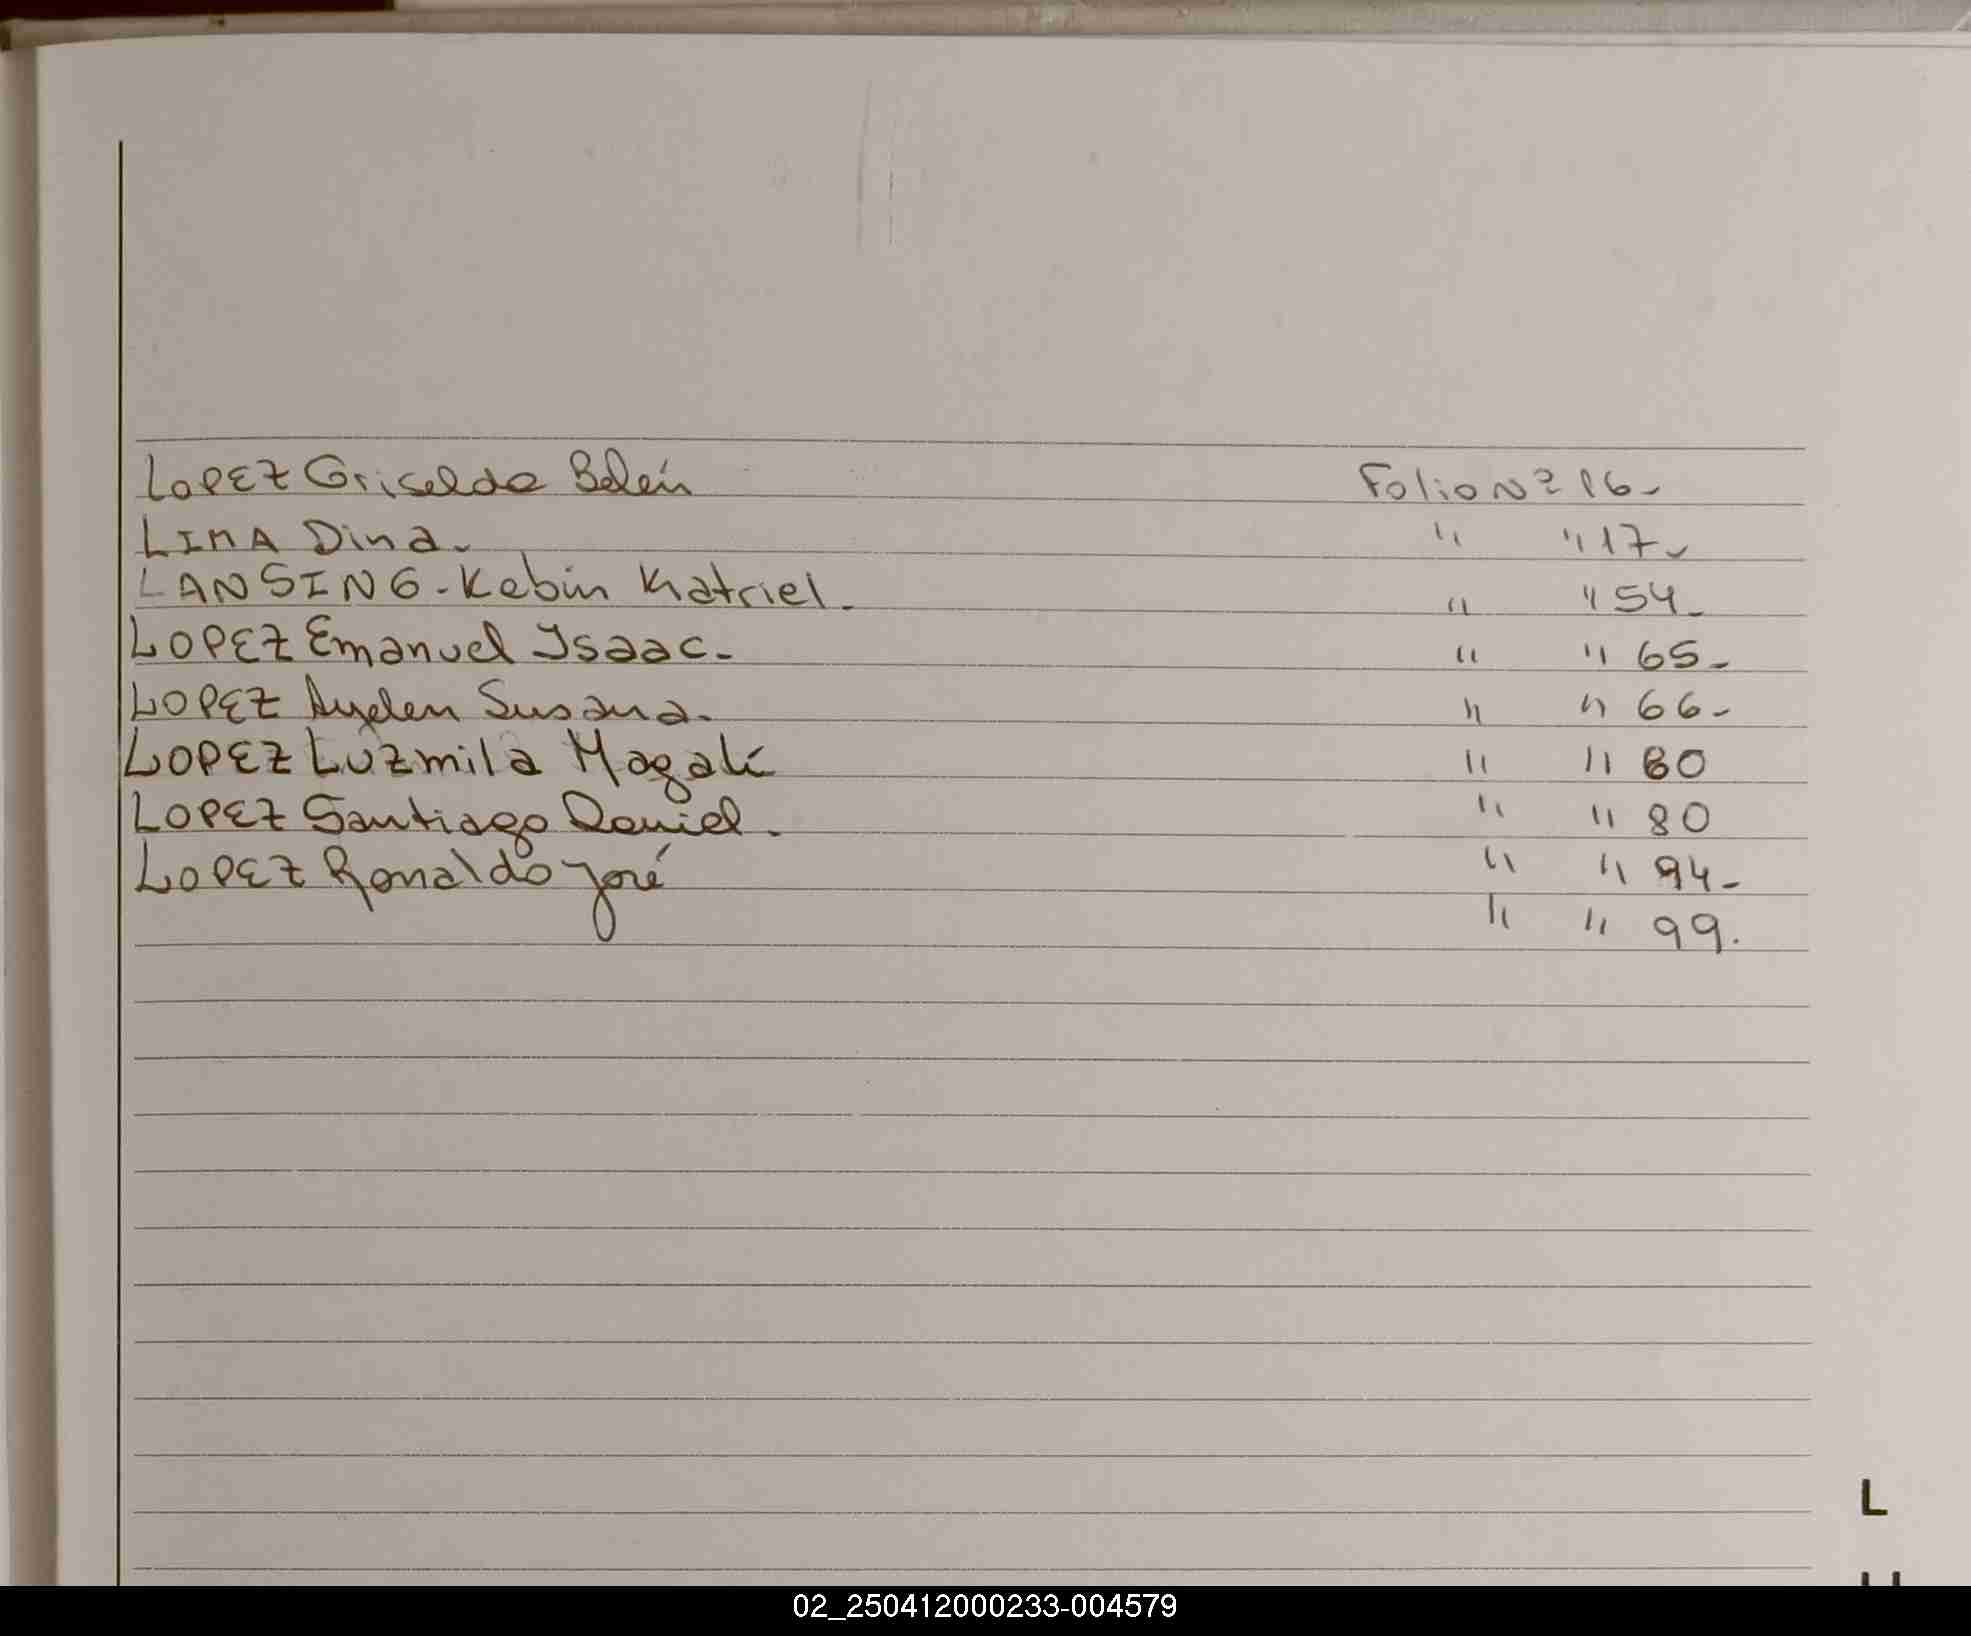 LOPEZ Griselda Belén Folio Nº 16-
LIMA Dina. " " 17-
LANSING-Kebin Katriel. " " 54-
LOPEZ Emanuel Isaac- " " 65-
LOPEZ Ayelen Susana. " " 66-
LOPEZ Luzmila Magalí " " 80
LOPEZ Santiago Daniel. " " 80
LOPEZ Ronaldo José " " 94-
" " 99.
L
02_250412000233-004579